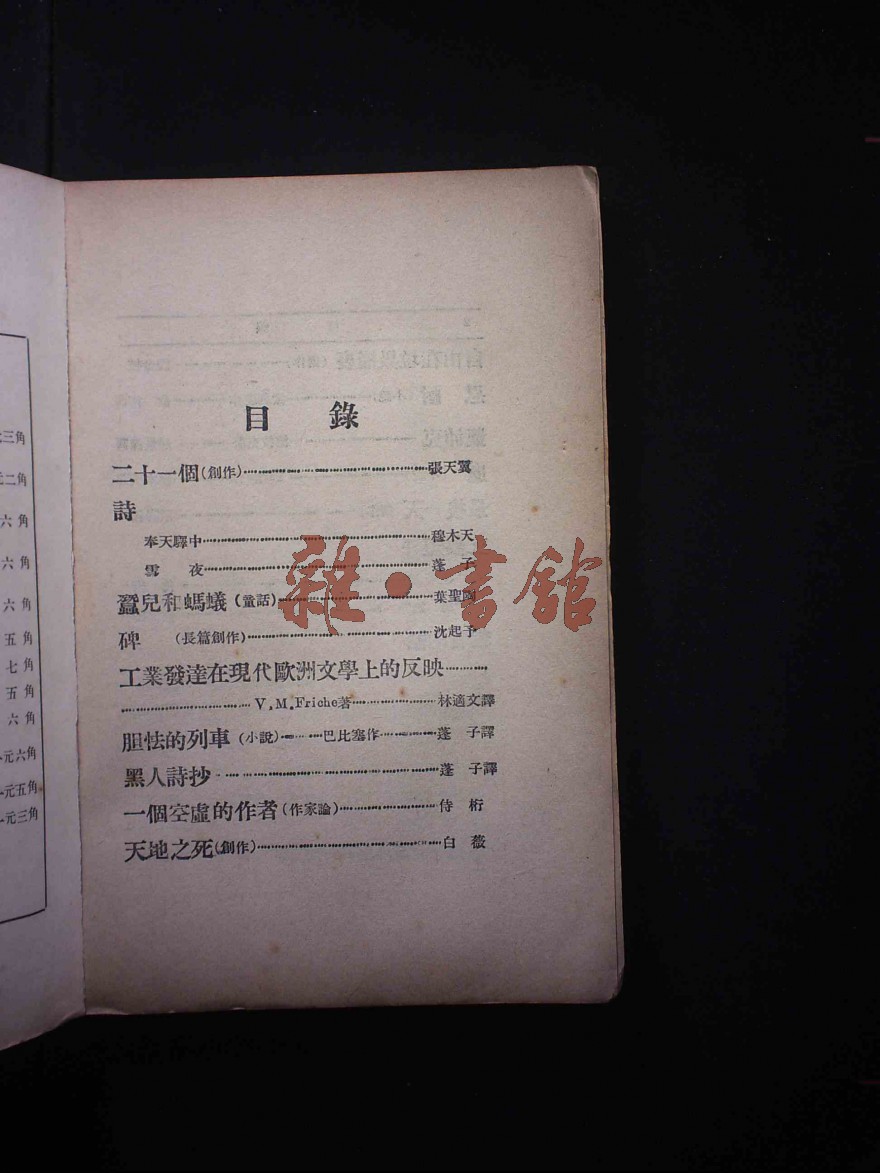 三角
二角
六角
六角
六角
五角
七角
五角
六角
元六角
元五角
元三角
目錄
二十一個(創作)…………張天翼
詩
奉天驛中…………穆木天
雪夜…………蓬子
蠶兒和螞蟻(童話)…………葉聖陶
碑(長篇創作)…………沈起予
工業發達在現代歐洲文學上的反映…………
…………V.M.Friche著…………林適文譯
胆怯的列車(小說)……巴比塞作……蓬子譯
黑人詩抄…………蓬子譯
一個空虛的作者(作家論)…………侍桁
天地之死(創作)…………白薇
雜·書館